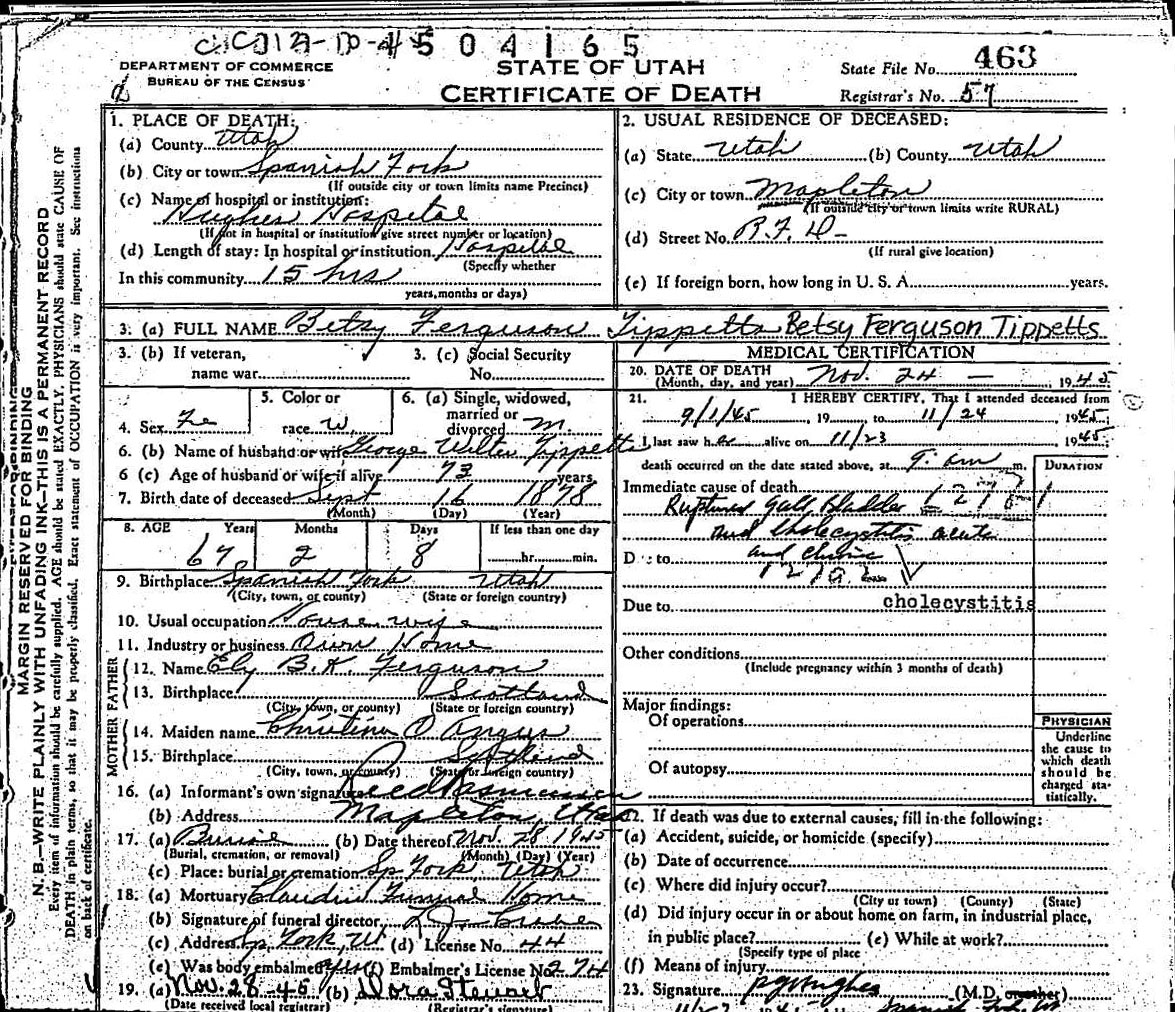 4504165
DEPARTMENT OF COMMERCE
BUREAU OF THE CENSUS
STATE OF UTAH
CERTIFICATE OF DEATH
State File No. 463
Registrar's No. 57
MARGIN RESERVED FOR BINDING
N. B.—WRITE PLAINLY WITH UNFADING INK—THIS IS A PERMANENT RECORD
Every item of information should be carefully supplied. AGE should be stated EXACTLY. PHYSICIANS should state CAUSE OF
DEATH in plain terms, so that it may be properly classified. Exact statement of OCCUPATION is very important. See instructions
on back of certificate.
1. PLACE OF DEATH:
(a) County Utah
(b) City or town Spanish Fork
(If outside city or town limits name Precinct)
(c) Name of hospital or institution:
Hughes Hospital
(If not in hospital or institution give street number or location)
(d) Length of stay: In hospital or institution Hospital
(Specify whether
In this community 15 hrs
years, months or days)
2. USUAL RESIDENCE OF DECEASED:
(a) State Utah (b) County Utah
(c) City or town Mapleton
(If outside city or town limits write RURAL)
(d) Street No. R.F.D-
(If rural give location)
(e) If foreign born, how long in U. S. A. years.
3. (a) FULL NAME Betsy Ferguson Tippetts Betsy Ferguson Tippetts
3. (b) If veteran,
name war
3. (c) Social Security
No.
4. Sex Fe
5. Color or
race W.
6. (a) Single, widowed,
married or
divorced M.
6. (b) Name of husband or wife George Tippetts
6 (c) Age of husband or wife if alive 73 years
7. Birth date of deceased Sept 16 1878
(Month) (Day) (Year)
8. AGE Years Months Days If less than one day
67 2 8 hr. min.
9. Birthplace Spanish Fork Utah
(City, town, or county) (State or foreign country)
10. Usual occupation House wife
11. Industry or business Own Home
FATHER
12. Name Ely B.K Ferguson
13. Birthplace Scotland
(City, town, or county) (State or foreign country)
MOTHER
14. Maiden name Christina O Angus
15. Birthplace Scotland
(City, town, or county) (State or foreign country)
16. (a) Informant's own signature Reed Rasmussen
(b) Address Mapleton, Utah
17. (a) Burial (b) Date thereof Nov. 28 1945
(Burial, cremation, or removal) (Month) (Day) (Year)
(c) Place: burial or cremation Sp. Fork Utah
18. (a) Mortuary Claudin Funeral Home
(b) Signature of funeral director
(c) Address Sp. Fork, U. (d) License No. 44
(e) Was body embalmed? yes (f) Embalmer's License No. 274
19. (a) Nov. 28-45 (b) Dora
(Date received local registrar) (Registrar's signature)
MEDICAL CERTIFICATION
20. DATE OF DEATH
(Month, day, and year) Nov. 24 — , 1945
21. I HEREBY CERTIFY, That I attended deceased from
9/1/45, 19 to 11/24 1945
I last saw her alive on 11/23 1945
death occurred on the date stated above, at 9. am m.
DURATION
Immediate cause of death
Ruptured Gall Bladder
and cholecystitis acute
D e to and chronic
Due to cholecystitis
Other conditions
(Include pregnancy within 3 months of death)
Major findings:
Of operations
Of autopsy
PHYSICIAN
Underline
the cause to
which death
should be
charged sta-
tistically.
22. If death was due to external causes, fill in the following:
(a) Accident, suicide, or homicide (specify)
(b) Date of occurrence
(c) Where did injury occur?
(City or town) (County) (State)
(d) Did injury occur in or about home on farm, in industrial place,
in public place? (e) While at work?
(Specify type of place
(f) Means of injury
23. Signature P G Hughes (M.D. or other)